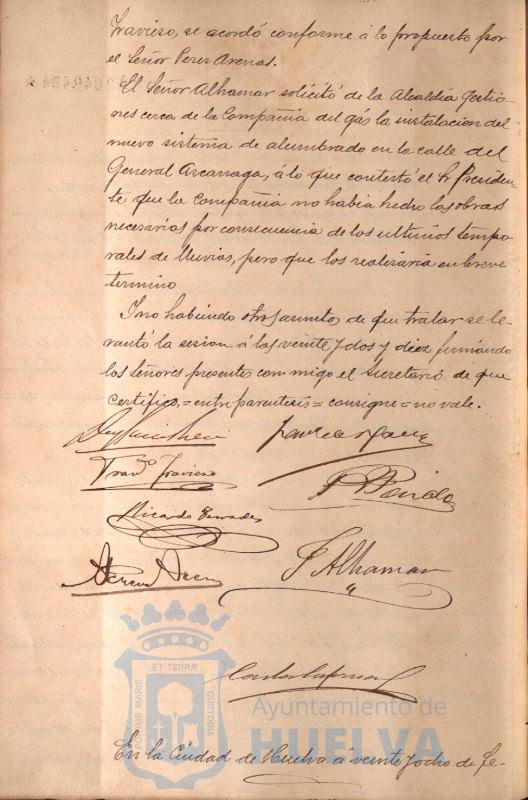 Travieso, se acordó conforme á lo propuesto por
el Señor Perez Arenas.
El Señor Alhamar solicitó de la Alcaldia gestio
nes cerca de la Compañia del gas la instalacion del
nuevo sistema de alumbrado en la calle del
General Azcarraga, á lo que contestó el Sr Presiden
te que la Compañia no habia hecho las obras
necesarias por consecuencia de los ultimos tempo
rales de lluvias, pero que los realizaria en breve
termino
I no habiendo otros asuntos de que tratar se le-
vantó la sesion á las veinte y dos y diez firmando
los señores presentes con migo el Secretario de que
certifico.=entre parentesis=consigne=no vale.
Travieso
Ricardo Terrades
F Alhamar
ET TERRÆ
PORTUS MARIS
CUSTODIA
Ayuntamiento de
HUELVA
En la Ciudad de Huelva á veinte y ocho de Fe-